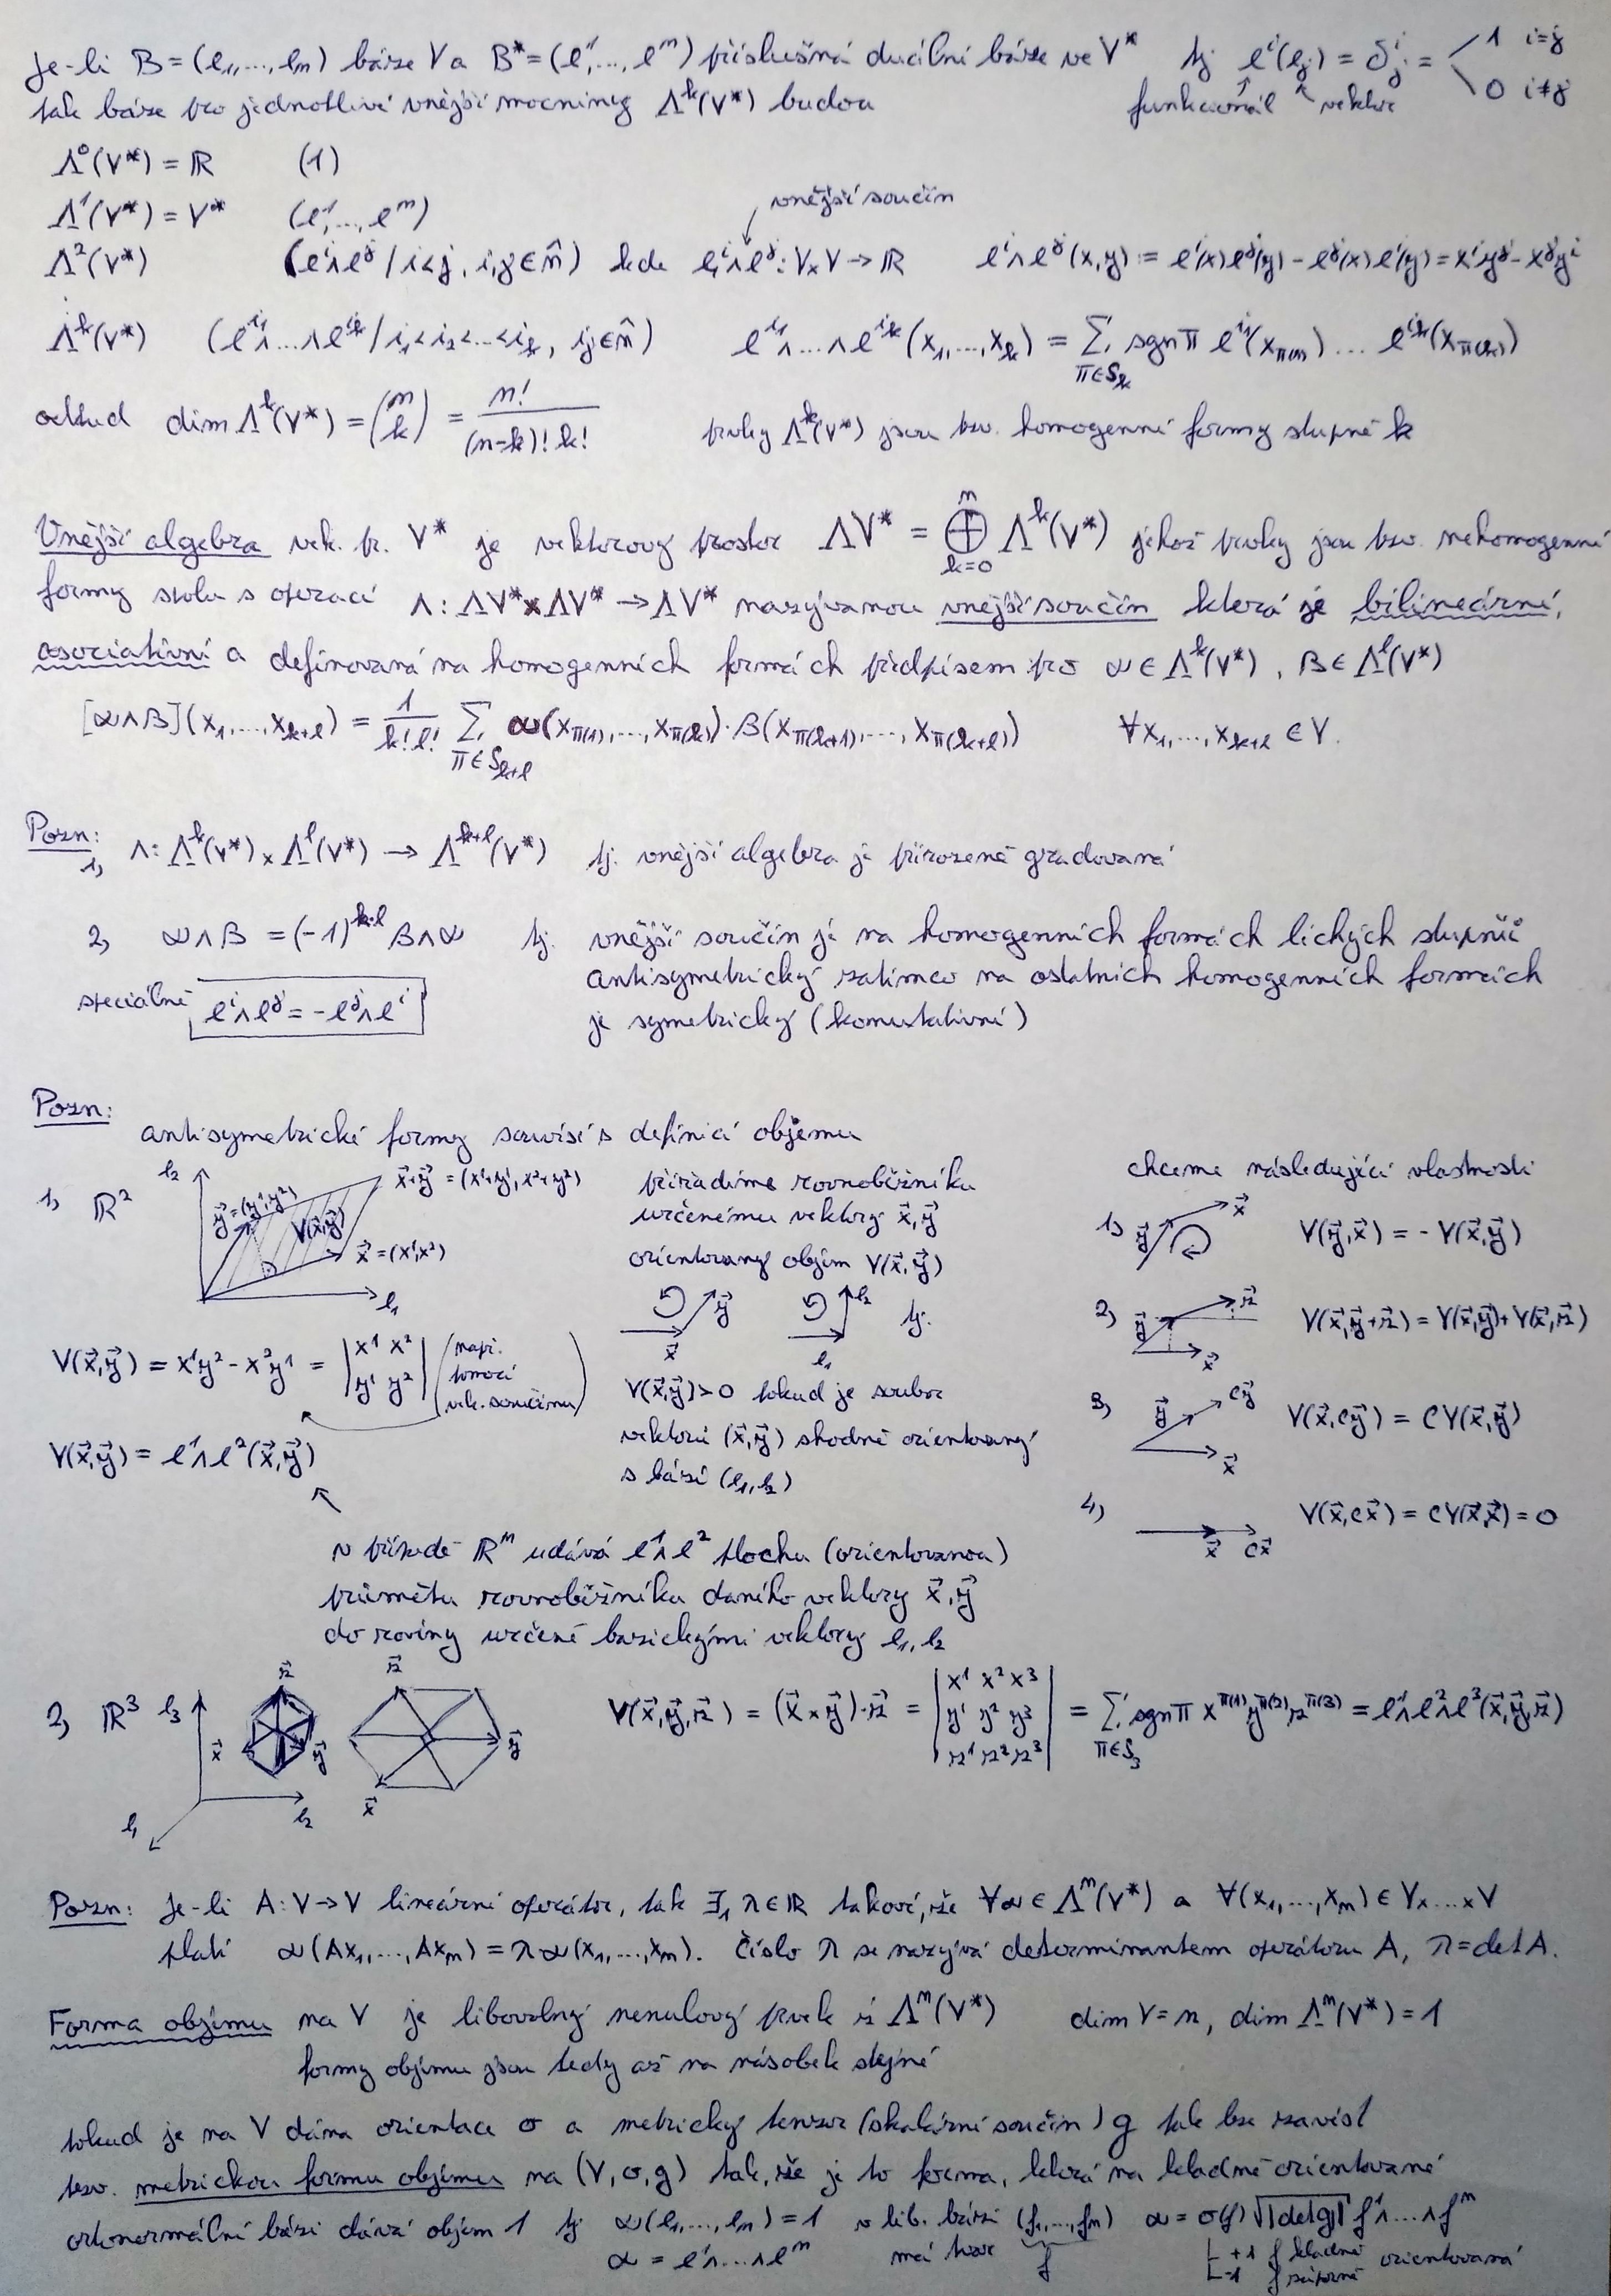 Je-li B=(e₁,...,eₙ) báze V a B*=(e¹,...,eⁿ) příslušná duální báze ve V* tj eⁱ(eⱼ) = δⁱⱼ = 1 i=j
0 i≠j
tak báze pro jednotlivé vnější mocniny Λᵏ(V*) budou funkcionál vektor
Λ⁰(V*) = ℝ (1)
Λ¹(V*) = V* (e¹,...,eⁿ)
vnější součin
Λ²(V*) (eⁱ∧eʲ / i<j, i,j∈n̂) kde eⁱ∧eʲ: V×V→ℝ eⁱ∧eʲ(x,y) := eⁱ(x)eʲ(y) - eʲ(x)eⁱ(y) = xⁱyʲ - xʲyⁱ
Λᵏ(V*) (e^{i₁}∧...∧e^{i_k} / i₁<i₂<...<i_k, i_j∈n̂) e^{i₁}∧...∧e^{i_k}(x₁,...,x_k) = ∑_{π∈S_k} sgnπ e^{i₁}(x_{π(1)}) ... e^{i_k}(x_{π(k)})
odkud dim Λᵏ(V*) = (n k) = n! / (n-k)! k! prvky Λᵏ(V*) jsou tzv. homogenní formy stupně k
Vnější algebra vek. pr. V* je vektorový prostor ΛV* = ⊕_{k=0}^{n} Λᵏ(V*) jehož prvky jsou tzv. nehomogenní
formy spolu s operací ∧: ΛV*×ΛV* → ΛV* nazývanou vnější součin která je bilineární,
asociativní a definovaná na homogenních formách předpisem pro α∈Λᵏ(V*), β∈Λˡ(V*)
[α∧β](x₁,...,x_{k+l}) = 1/(k!l!) ∑_{π∈S_{k+l}} α(x_{π(1)},...,x_{π(k)})·β(x_{π(k+1)},...,x_{π(k+l)}) ∀x₁,...,x_{k+l} ∈V.
Pozn:
1, ∧: Λᵏ(V*)×Λˡ(V*) → Λ^{k+l}(V*) tj. vnější algebra je přirozeně gradovaná
2, α∧β = (-1)^{k·l} β∧α tj. vnější součin je na homogenních formách lichých stupňů
antisymetrický zatímco na ostatních homogenních formách
speciálně eⁱ∧eʲ = -eʲ∧eⁱ
je symetrický (komutativní)
Pozn:
antisymetrické formy souvisí s definicí objemu
1, ℝ²
e₂
x⃗+y⃗ = (x¹+y¹, x²+y²)
y⃗=(y¹,y²)
V(x⃗,y⃗)
x⃗ = (x¹,x²)
e₁
přiřadíme rovnoběžníku
určenému vektory x⃗,y⃗
orientovaný objem V(x⃗,y⃗)
y⃗ e₂ tj.
x⃗ e₁
V(x⃗,y⃗)>0 pokud je soubor
vektorů (x⃗,y⃗) shodně orientovaný
s bází (e₁,e₂)
chceme následující vlastnosti
1, y⃗ x⃗ V(y⃗,x⃗) = -V(x⃗,y⃗)
2, y⃗ z⃗ x⃗ V(x⃗,y⃗+z⃗) = V(x⃗,y⃗)+V(x⃗,z⃗)
3, y⃗ cy⃗ x⃗ V(x⃗,cy⃗) = cV(x⃗,y⃗)
4, x⃗ cx⃗ V(x⃗,cx⃗) = cV(x⃗,x⃗) = 0
V(x⃗,y⃗) = x¹y² - x²y¹ = |x¹ x² y¹ y²| (např. pomocí vek. součinu)
V(x⃗,y⃗) = e¹∧e²(x⃗,y⃗)
v případě ℝⁿ udává e¹∧e² plochu (orientovanou)
průmětu rovnoběžníku daného vektory x⃗,y⃗
do roviny určené bazickými vektory e₁,e₂
2, ℝ³ e₃ z⃗ x⃗ y⃗ e₂ e₁ z⃗ y⃗ x⃗
V(x⃗,y⃗,z⃗) = (x⃗×y⃗)·z⃗ = |x¹ x² x³ y¹ y² y³ z¹ z² z³| = ∑_{π∈S₃} sgnπ x^{π(1)}y^{π(2)}z^{π(3)} = e¹∧e²∧e³(x⃗,y⃗,z⃗)
Pozn: Je-li A: V→V lineární operátor, tak ∃₁ λ∈ℝ takové, že ∀α∈Λⁿ(V*) a ∀(x₁,...,xₙ)∈V×...×V
platí α(Ax₁,...,Axₙ) = λα(x₁,...,xₙ). Číslo λ se nazývá determinantem operátoru A, λ=detA.
Forma objemu na V je libovolný nenulový prvek z Λⁿ(V*) dim V=n, dim Λⁿ(V*)=1
formy objemu jsou tedy až na násobek stejné
pokud je na V dána orientace σ a metrický tenzor (skalární součin) g tak lze zavést
tzv. metrickou formu objemu na (V,σ,g) tak, že je to forma, která na kladně orientované
ortonormální bázi dává objem 1 tj α(e₁,...,eₙ)=1 v lib. bázi (f₁,...,fₙ) α = σ(f)√|detg| f¹∧...∧fⁿ
α = e¹∧...∧eⁿ má tvar f
+1 f kladně
-1 f záporně orientovaná